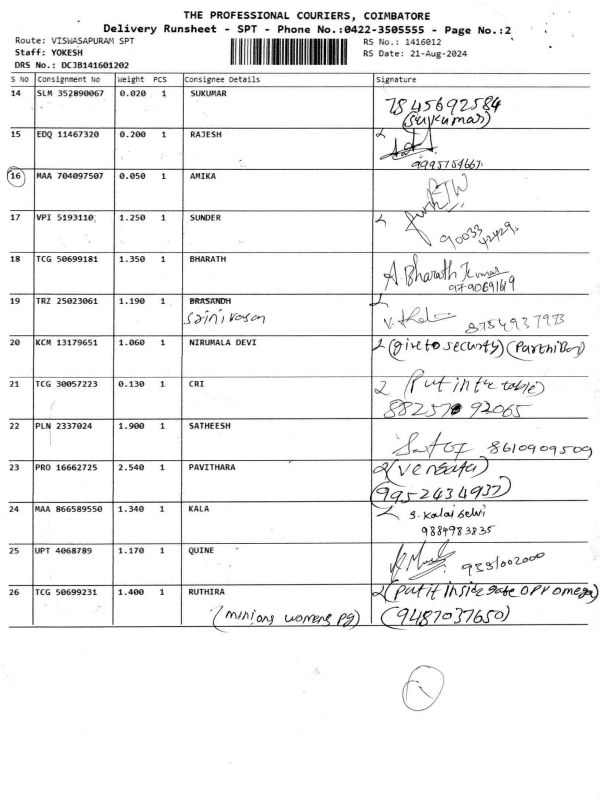 THE PROFESSIONAL COURIERS, COIMBATORE
Delivery Runsheet - SPT - Phone No.:0422-3505555 - Page No.:2
Route: VISWASAPURAM SPT RS No.: 1416012
Staff: YOKESH RS Date: 21-Aug-2024
DRS No.: DCJB141601202
S No Consignment No Weight PCS Consignee Details Signature
14 SLM 352890067 0.020 1 SUKUMAR 7845692584
(Sukumar)
15 EDQ 11467320 0.200 1 RAJESH
9995754667
16 MAA 704097507 0.050 1 AMIKA
17 VPI 5193110 1.250 1 SUNDER
90033
42429
18 TCG 50699181 1.350 1 BHARATH A. Bharath Kumar
9790691149
19 TRZ 25023061 1.190 1 BRASANDH
Srinivasan 8754937973
20 KCM 13179651 1.060 1 NIRUMALA DEVI 2 (give to security) (Parthiban)
21 TCG 30057223 0.130 1 CRI 2 (Put in the table)
88257 92065
22 PLN 2337024 1.900 1 SATHEESH 8610909509
23 PRO 16662725 2.540 1 PAVITHARA 2 (Vensata)
(9952434937)
24 MAA 866589550 1.340 1 KALA S. Kalai Selvi
9884983835
25 UPT 4068789 1.170 1 QUINE
26 TCG 50699231 1.400 1 RUTHIRA 2 (Put it inside gate opp omega)
(minions womens pg) (9487037650)